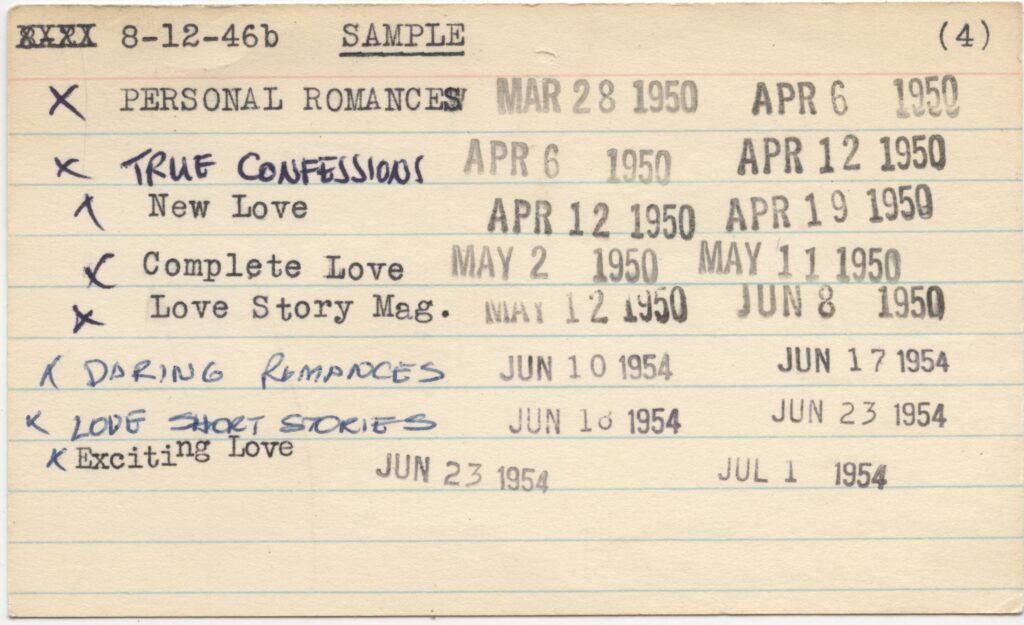 XXXX 8-12-46b SAMPLE (4)
X PERSONAL ROMANCES MAR 28 1950 APR 6 1950
X TRUE CONFESSIONS APR 6 1950 APR 12 1950
New Love APR 12 1950 APR 19 1950
X Complete Love MAY 2 1950 MAY 11 1950
X Love Story Mag. MAY 12 1950 JUN 8 1950
X DARING ROMANCES JUN 10 1954 JUN 17 1954
X LOVE SHORT STORIES JUN 1954 JUN 23 1954
X Exciting Love JUN 23 1954 JUL 1 1954